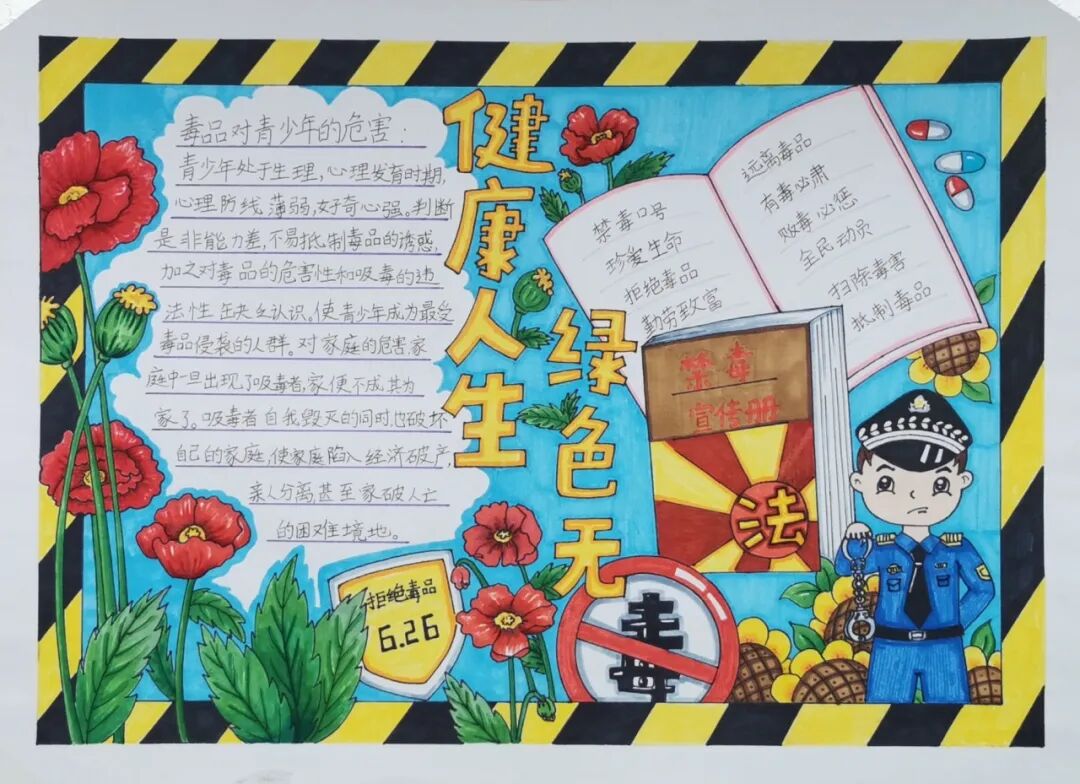 毒品对青少年的危害:
青少年处于生理,心理发育时期,
心理防线薄弱,好奇心强。判断
是非能力差,不易抵制毒品的诱惑,
加之对毒品的危害性和吸毒的违
法性缺乏认识。使青少年成为最受
毒品侵袭的人群。对家庭的危害,家
庭中一旦出现了吸毒者,家便不成其为
家了。吸毒者自我毁灭的同时,也破坏
自己的家庭,使家庭陷入经济破产,
亲人分离,甚至家破人亡
的困难境地。
健康人生
绿色无
毒
禁毒口号
珍爱生命
拒绝毒品
勤劳致富
远离毒品
有毒必肃
败毒必惩
全民动员
扫除毒害
抵制毒品
禁毒
宣传册
法
拒绝毒品
6.26